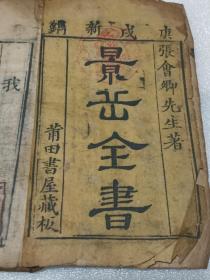 庚戌新鐫
張會卿先生著
景岳全書
莆田書屋藏板
我